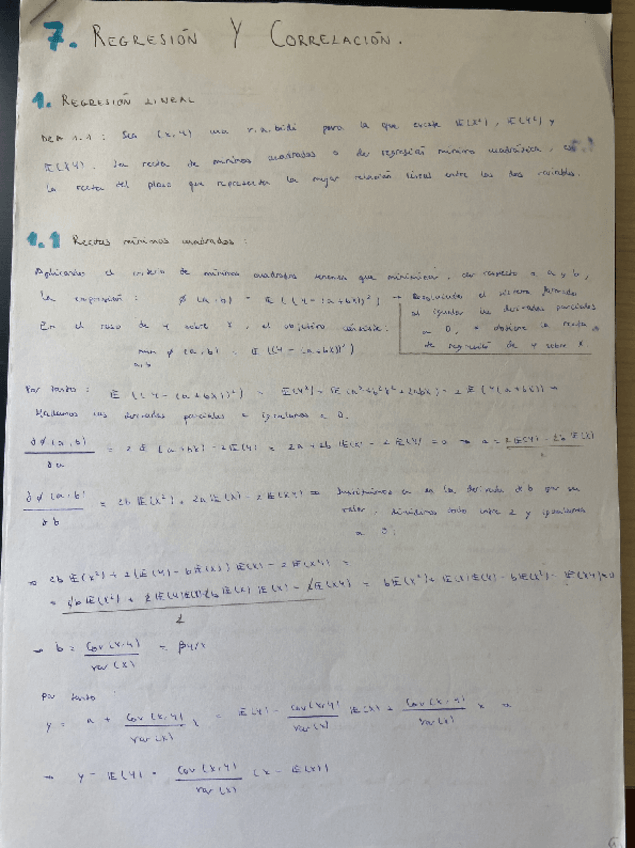 7. REGRESIÓN Y CORRELACIÓN.
1. REGRESIÓN LINEAL
DEF 1.1: Sea (X,Y) una r.a. bidi para la que existe E(X²), E(Y²) y
E(XY). La recta de mínimos cuadrados o de regresión mínimo cuadrática, es
la recta del plano que representa la mejor relación lineal entre las dos variables.
1.1 Rectas mínimos cuadrados:
Aplicando el criterio de mínimos cuadrados tenemos que minimizar, con respecto a a y b,
la expresión: ϕ(a,b) = E((Y-(a+bX))²) → Resolviendo el sistema formado
al igualar las derivadas parciales
En el caso de Y sobre X, el objetivo consiste:
a 0, se obtiene la recta
min ϕ(a,b) = E((Y-(a+bX))²)
a,b
de regresión de Y sobre X
Por tanto: E((Y-(a+bX))²) = E(Y²) + E(a²+b²X²+2abX) - 2E(Y(a+bX)) ⇒
Hallamos las derivadas parciales e igualamos a 0.
∂ϕ(a,b)/∂a = 2E(a+bX) - 2E(Y) = 2a + 2bE(X) - 2E(Y) = 0 ⇒ a = 2E(Y) - 2bE(X)/2
∂ϕ(a,b)/∂b = 2bE(X²) + 2aE(X) - 2E(XY) ⇒ Sustituimos en la derivada de b por su
valor, dividimos todo entre 2 y igualamos
a 0:
⇒ 2bE(X²) + 2(E(Y) - bE(X))E(X) - 2E(XY) =
= 2bE(X²) + 2E(Y)E(X) - 2bE(X)E(X) - 2E(XY)/2 = bE(X²) + E(X)E(Y) - bE(X)² - E(XY) = 0
→ b = Cov(X,Y)/Var(X) = βY/X
Por tanto:
y = a + Cov(X,Y)/Var(X) x = E(Y) - Cov(X,Y)/Var(X) E(X) + Cov(X,Y)/Var(X) x ⇒
→ y - E(Y) = Cov(X,Y)/Var(X) (x - E(X))